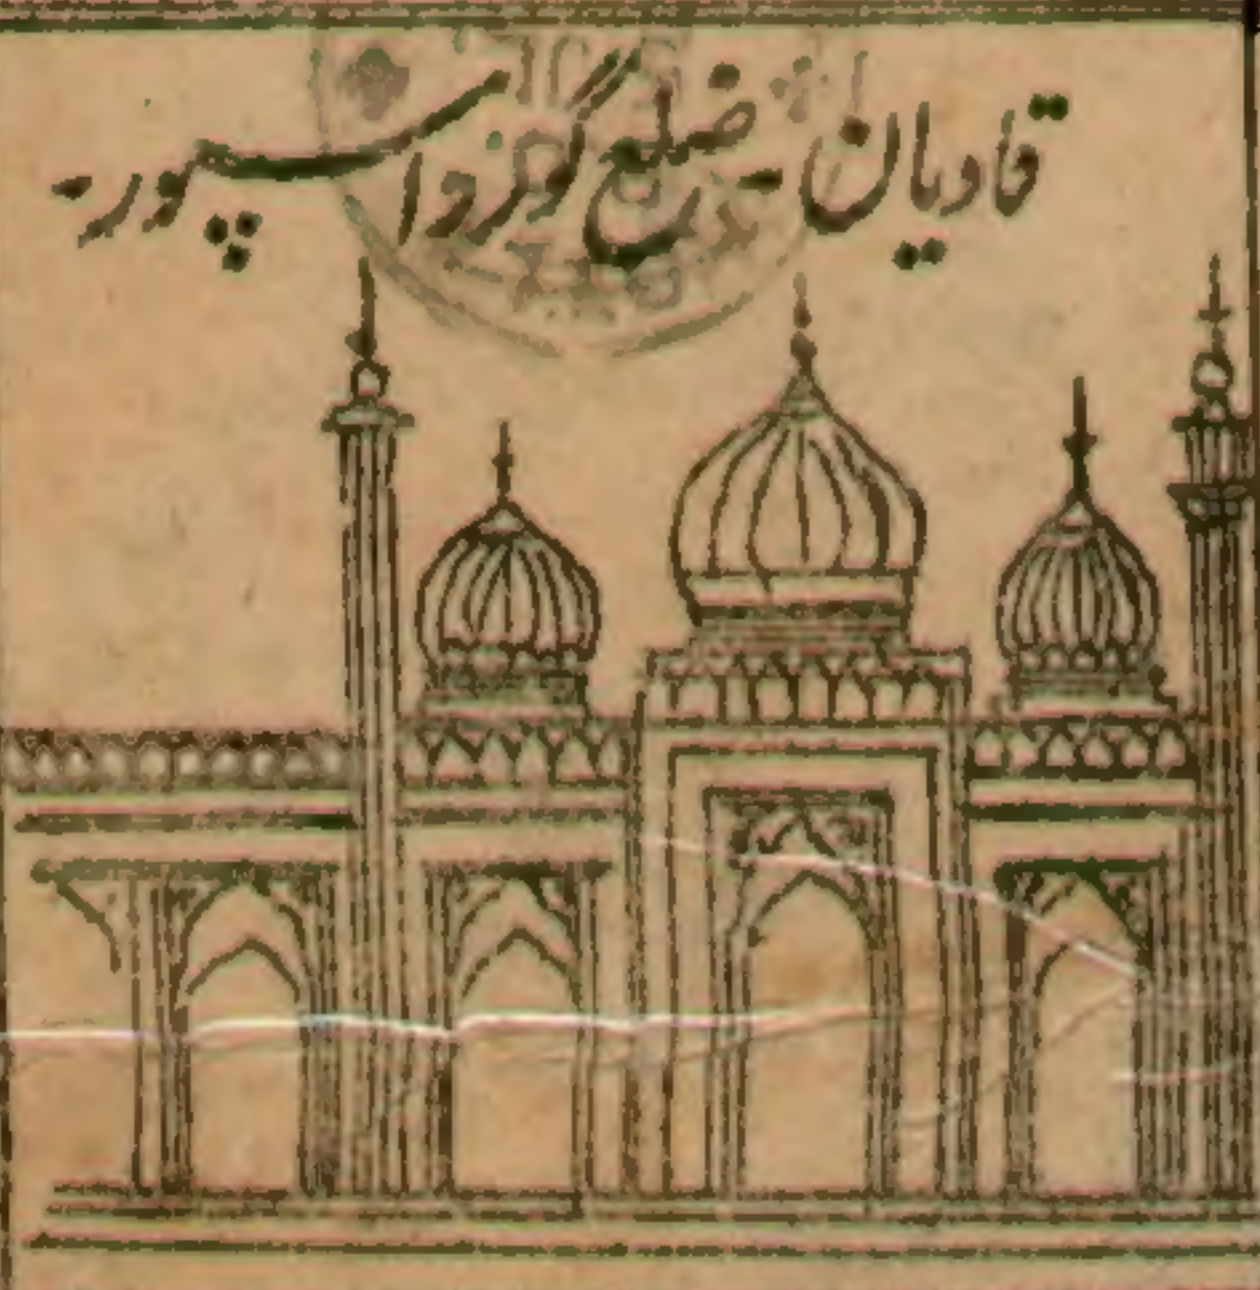 قادیان - ضلع گورداسپور -